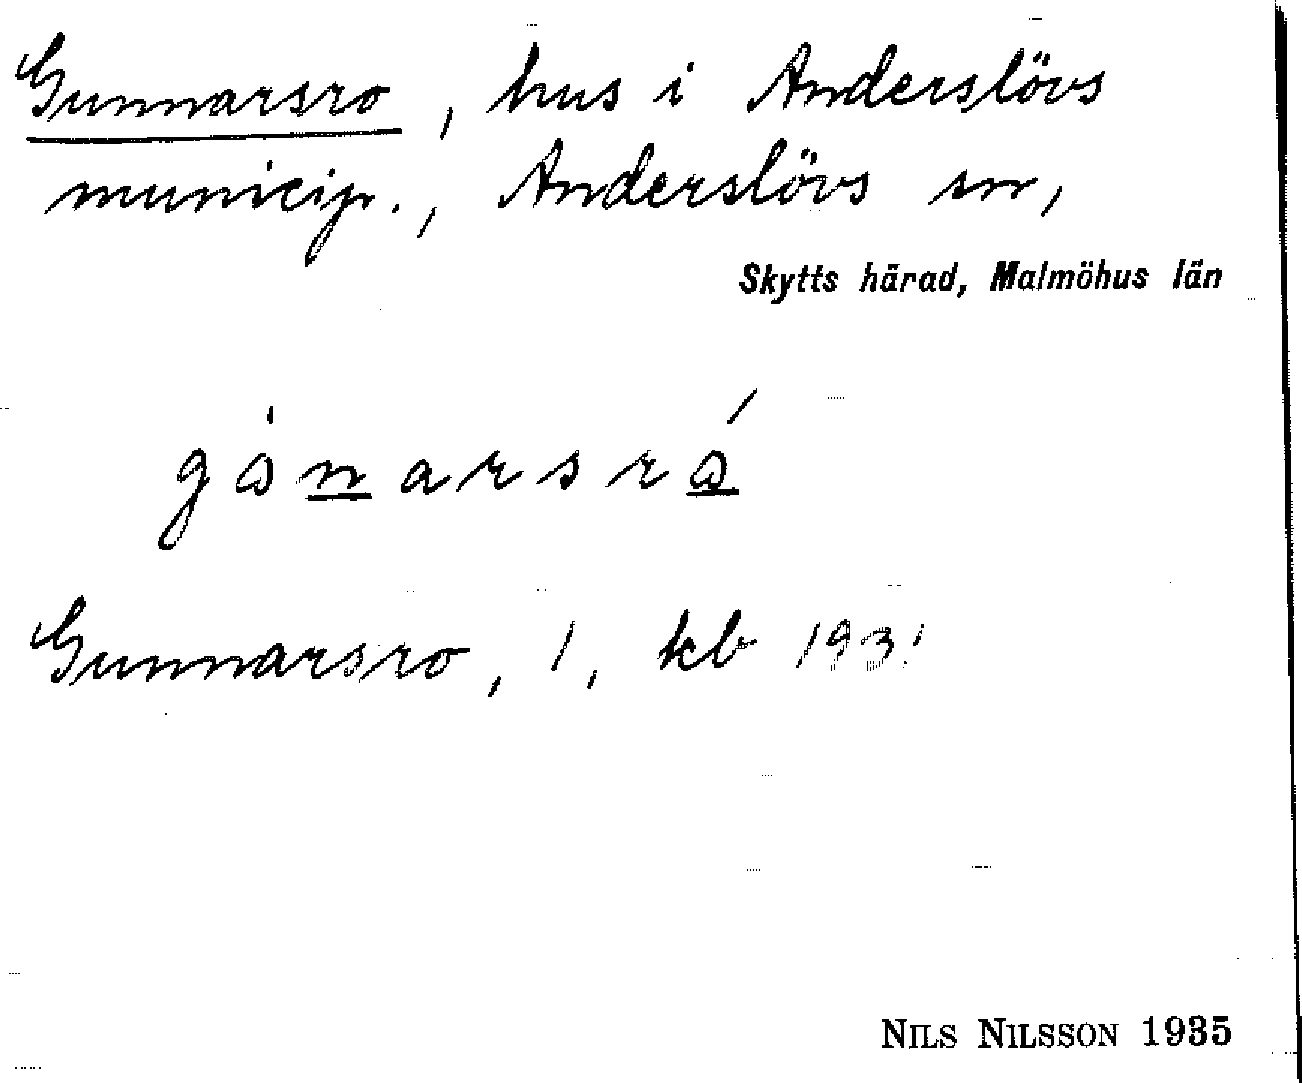 Gunnarsro, hus i Anderslövs
municip., Anderslövs sn,
Skytts härad, Malmöhus län
gånarsrå
Gunnarsro, 1, kb 1931
NILS NILSSON 1935